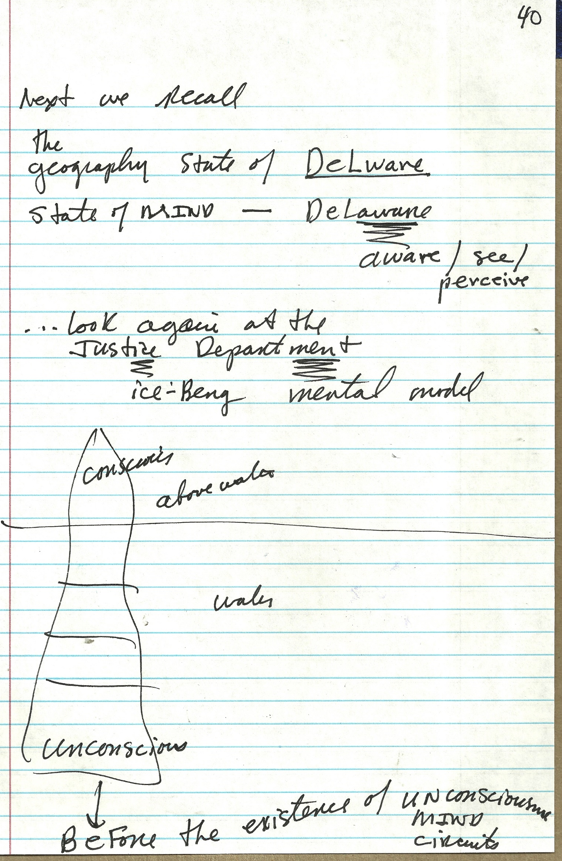 40
Next we Recall
the
geography State of DeLware
State of MIND — Delaware
aware / see /
perceive
... look again at the
Justice Department
ice-Berg mental model
conscious
above water
water
Unconscious
Before the existence of UNconscious
MIND
circuits